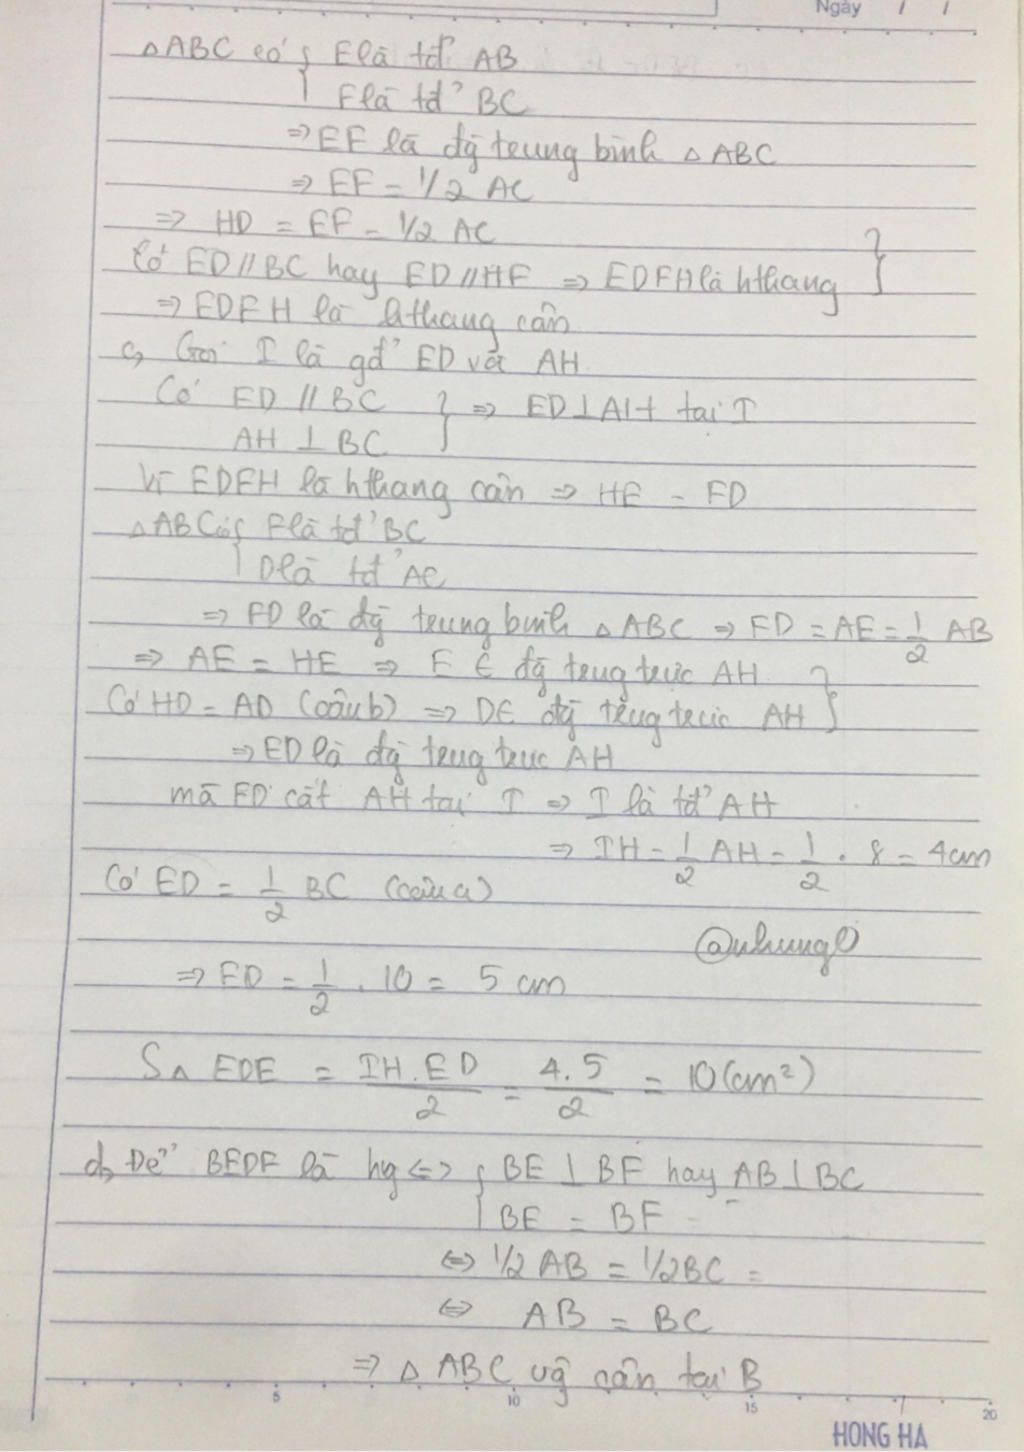 Ngày / /
△ABC có { E là tđ' AB
F là tđ' BC
⇒ EF là đg trung bình △ABC
⇒ EF = 1/2 AC
⇒ HD = EF = 1/2 AC
Có ED // BC hay ED // HF ⇒ EDFH là hthang }
⇒ EDFH là hthang cân
c, Gọi I là gđ' ED và AH
Có ED // BC } ⇒ ED ⊥ AH tại I
AH ⊥ BC
Vì EDFH là hthang cân ⇒ HE = FD
△ABC có { F là tđ' BC
D là tđ' AC
⇒ FD là đg trung bình △ABC ⇒ FD = AE = 1/2 AB
⇒ AE = HE ⇒ E ∈ đg trung trực AH }
Có HD = AD (câu b) ⇒ D ∈ đg trung trực AH
⇒ ED là đg trung trực AH
mà ED cắt AH tại I ⇒ I là tđ' AH
⇒ IH = 1/2 AH = 1/2 . 8 = 4cm
Có ED = 1/2 BC (câu a)
⇒ ED = 1/2 . 10 = 5 cm
S△ EDE = IH.ED/2 = 4.5/2 = 10 (cm²)
d, Để BEDF là hv ⇔ { BE ⊥ BF hay AB ⊥ BC
BE = BF
⇔ 1/2 AB = 1/2 BC =
⇔ AB = BC
⇒ △ ABC vg cân tại B
5 10 15 20
HONG HA